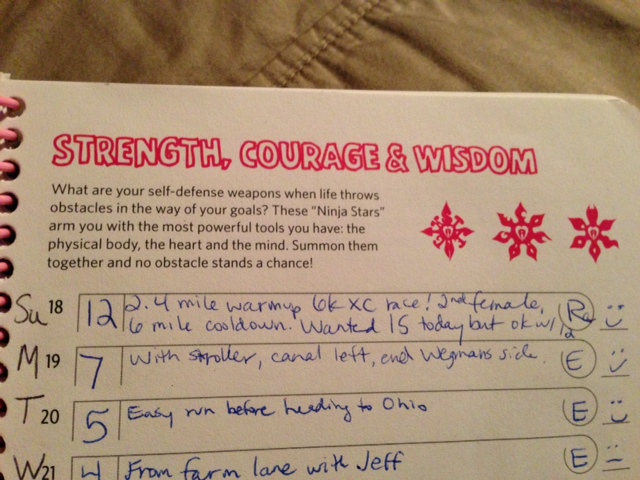 STRENGTH, COURAGE & WISDOM
What are your self-defense weapons when life throws
obstacles in the way of your goals? These "Ninja Stars"
arm you with the most powerful tools you have: the
physical body, the heart and the mind. Summon them
together and no obstacle stands a chance!
Su 18 12 2.4 mile warmup 6k XC race! 2nd female, Ra
6 mile cooldown. Wanted 15 today but ok w/ 12
M 19 7 With stroller, canal left, end Wegmans side. E
T 20 5 Easy run before heading to Ohio E
W 21 4 From farm lane with Jeff E